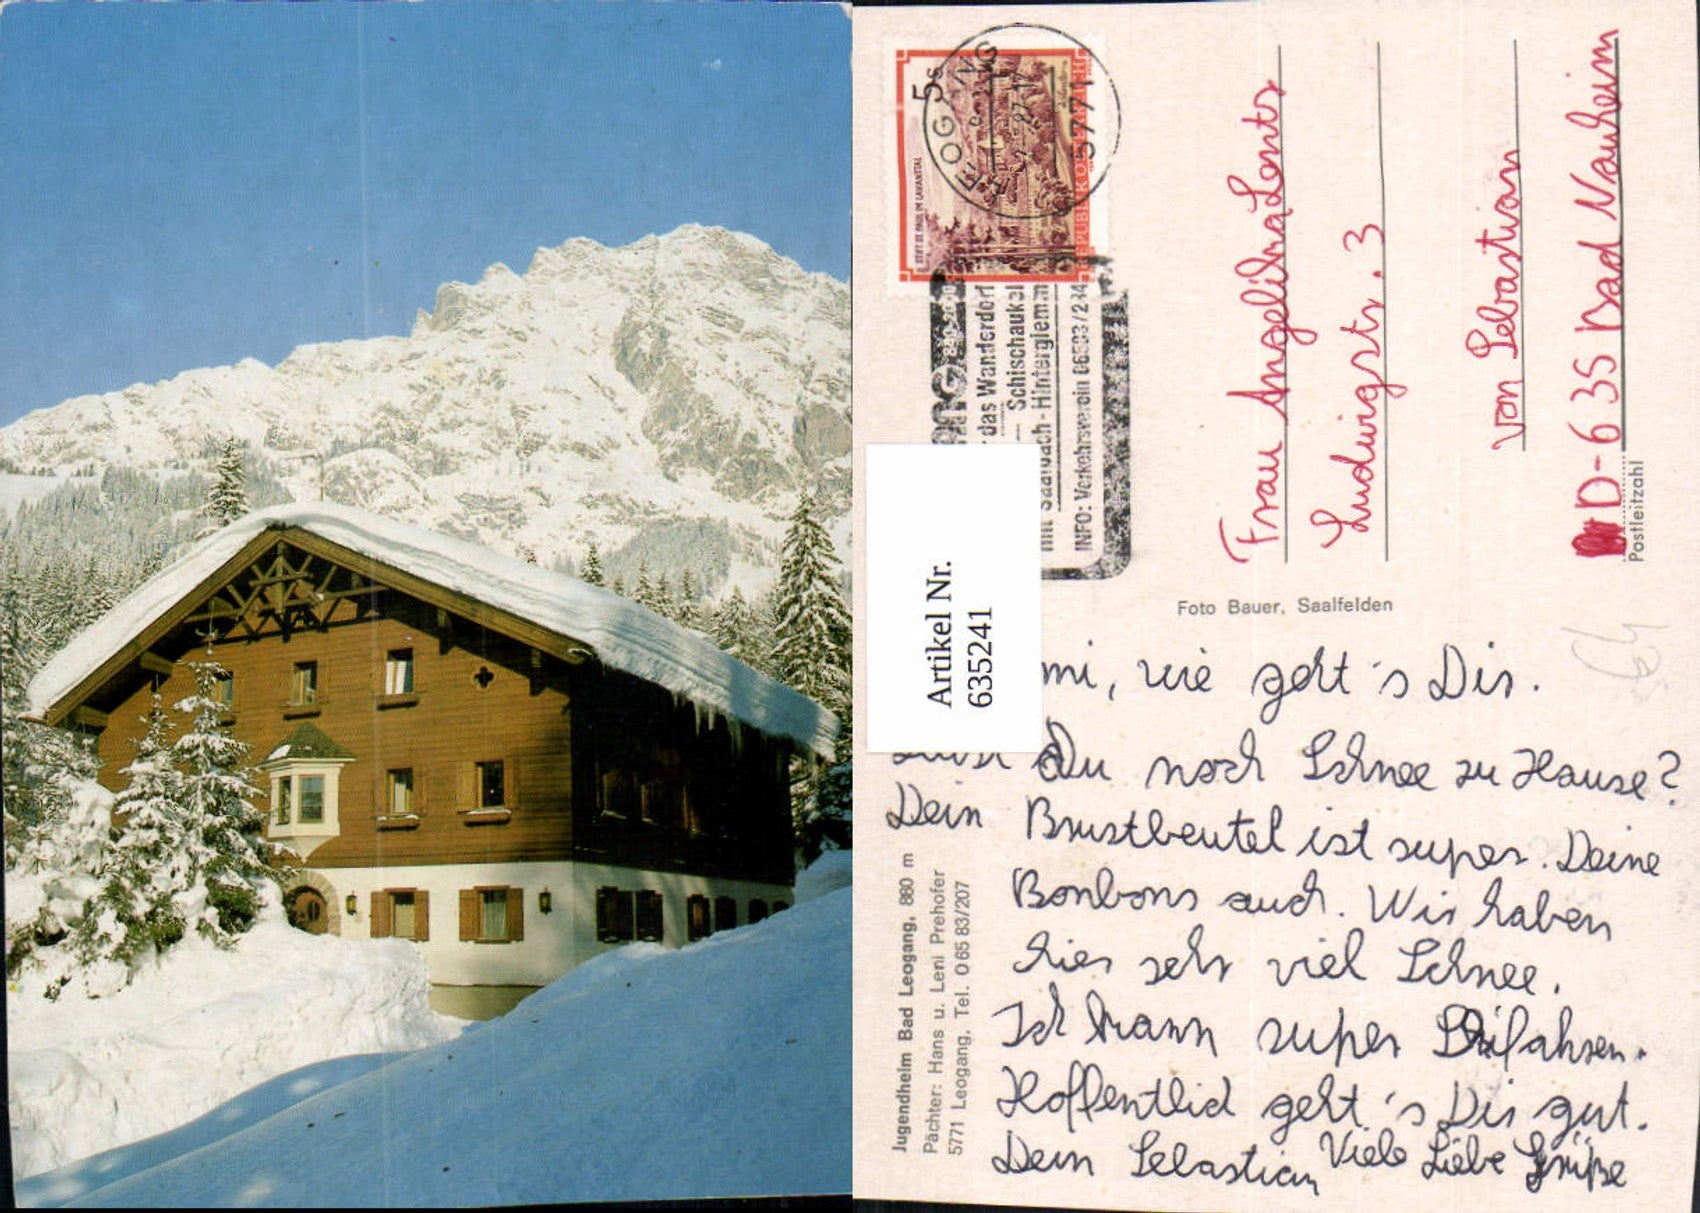 5s
STIFT ST. PAUL IM LAVANTTAL
REPUBLIK ÖSTERREICH
LEOGANG
5771
das Wanderdorf
Schischaukel
mit Saalbach-Hinterglemm
INFO: Verkehrsverein 06583/234
Frau Angelika Lentz
Ludwigstr. 3
von Sebastian
D-635 Bad Nauheim
Postleitzahl
Artikel Nr.
635241
Foto Bauer, Saalfelden
mi, wie geht's Dir.
Du noch Schnee zu Hause?
Dein Brustbeutel ist super. Deine
Bonbons auch. Wir haben
hier sehr viel Schnee.
Ich kann super Skifahren.
Hoffentlich geht's Dir gut.
Dein Sebastian Viele Liebe Grüße
Jugendheim Bad Leogang, 880 m
Pächter: Hans u. Leni Prehofer
5771 Leogang, Tel. 0 65 83/207